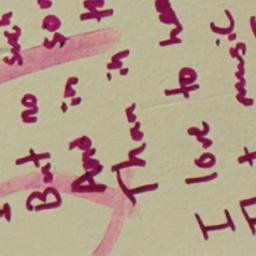 But no su
And in so
Than in th
I lov to hea
music